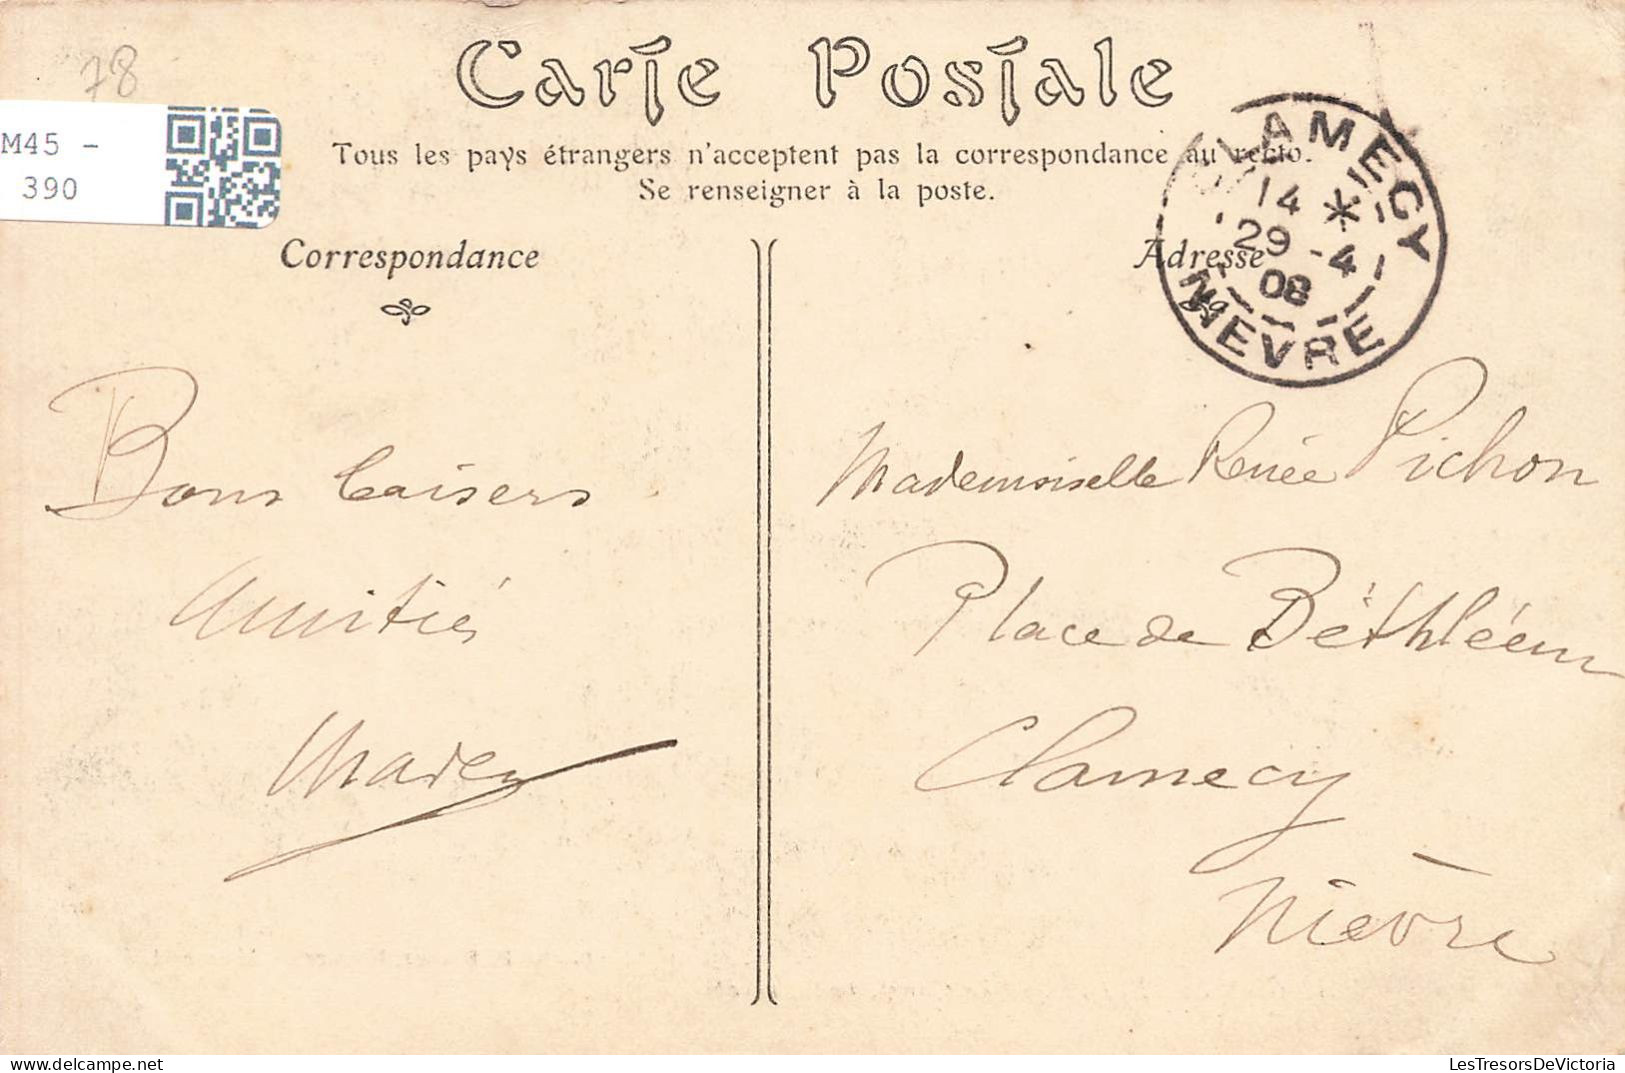 78
M45 -
390
Carte Postale
Tous les pays étrangers n'acceptent pas la correspondance au recto.
Se renseigner à la poste.
Correspondance
Adresse
CLAMECY
14 *
29 -4
08
NIEVRE
Bons baisers
Amitiés
Mademoiselle Renée Pichon
Place de Béthléem
Clamecy
Nièvre
LesTresorsDeVictoria
www.delcampe.net